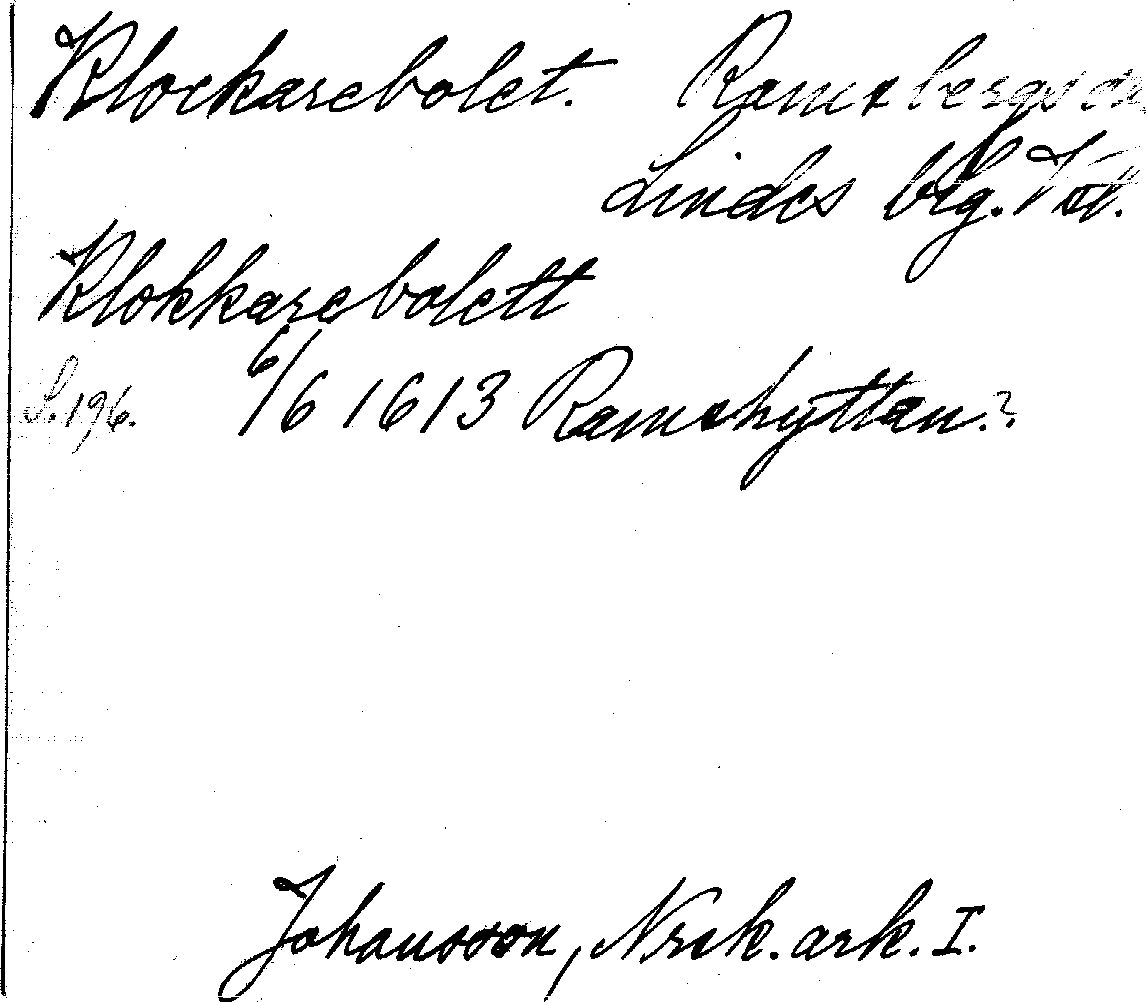 Klockarebolet. Ramsbergs sn
Lindes blg. Vstl.
Klokkarebolett
S. 196. 6/6 1613 Ramshyttan?
Johansson, Nrck. ark. I.